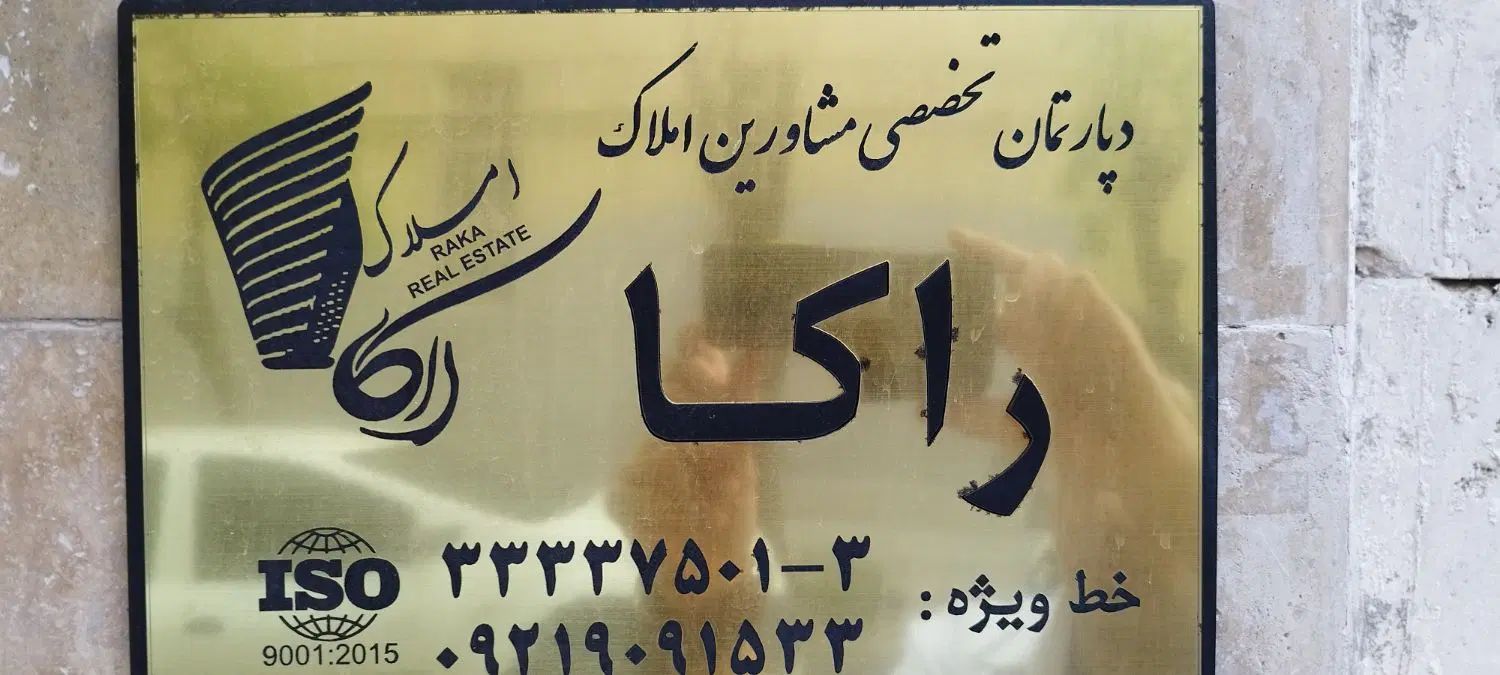 دپارتمان تخصصی مشاورین املاک
املاک
RAKA
REAL ESTATE
راکا
راکا
خط ویژه : ۳۳۳۳۷۵۰۱-۳
۰۹۲۱۹۰۹۱۵۳۳
ISO
9001:2015